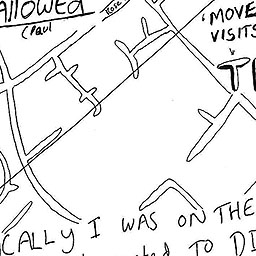 ALLOWED
(Paul
Rose
'MOVE
VISITS
T
ICALLY I WAS ON THE
TO DI